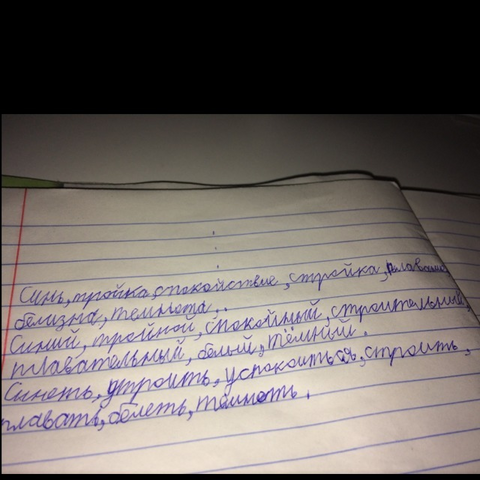 Синь, тройка, спокойствие, стройка, плавание
белизна, темнота.
Синий, тройной, спокойный, строительный,
плавательный, белый, тёмный.
Синеть, утроить, успокоиться, строить,
плавать, белеть, темнеть.